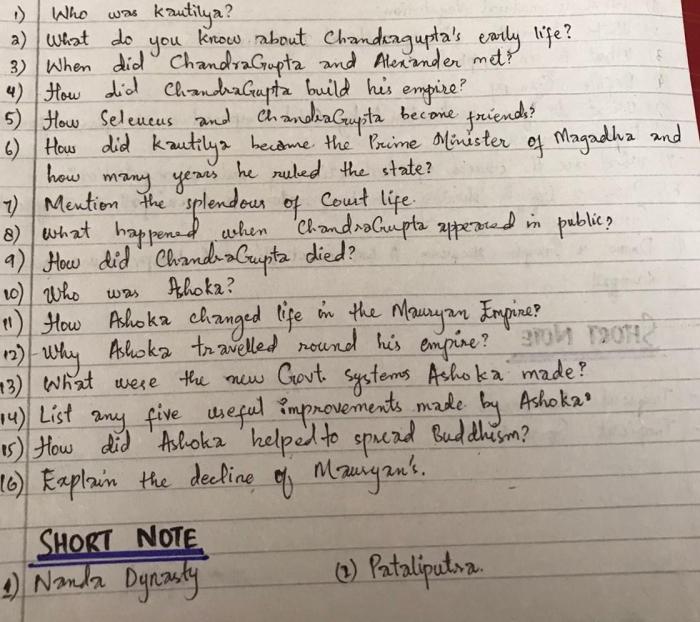 1) Who was Kautilya?
2) What do you know about Chandragupta's early life?
3) When did ChandraGupta and Alexander met?
4) How did ChandraGupta build his empire?
5) How Seleucus and ChandraGupta become friends?
6) How did Kautilya became the Prime Minister of Magadha and
how many years he ruled the state?
7) Mention the splendour of Court life.
8) What happened when ChandraGupta appeared in public?
9) How did ChandraGupta died?
10) Who was Ashoka?
11) How Ashoka changed life in the Mauryan Empire?
12) Why Ashoka travelled round his empire?
13) What were the new Govt. systems Ashoka made?
14) List any five useful improvements made by Ashoka.
15) How did Ashoka helped to spread Buddhism?
16) Explain the decline of Mauryan's.
SHORT NOTE
1) Nanda Dynasty (2) Pataliputra.